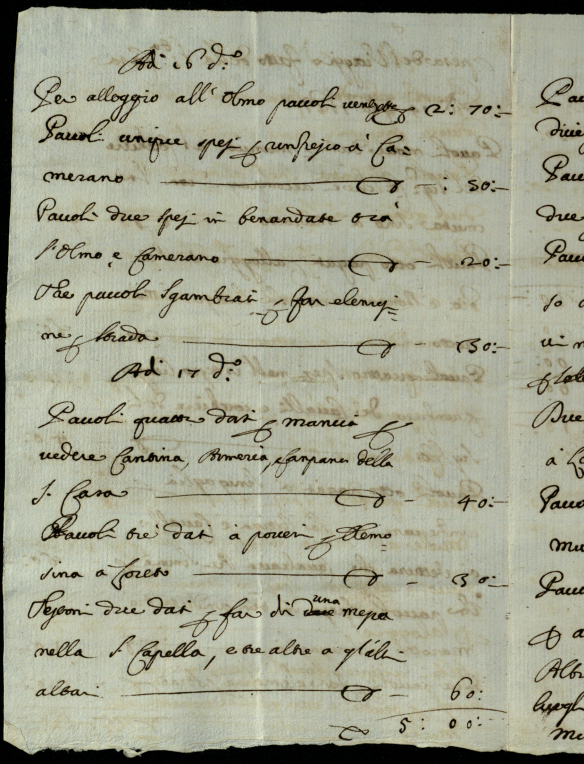 Adi 16 d.o
Per alloggio all' Olmo pavoli ventisette 2: 70:
Pavoli cinque spesi rinfresco à Ca=
merano — : 50:
Pavoli due spesi in benandate trà
l'Olmo, e Camerano — 20:
Tre pavoli sgambiati far elemosi=
ne strada — (30:
Adi 17 d.o
Pavoli quattro dati mancia
vedere Cantina, Armeria, e Campane della
S. Casa — 40:
Pavoli trè dati à poveri Elemo
sina à Loreto — 30:
Testoni due dati far dir due una messa
nella S. Capella, e tre altre a gl'altri
altari — 60:
5: 00:
Pav
due
Pav
due
Pav
so
vi
Due
à
Pavo
mu
Pavo
Alt
luogh
mu